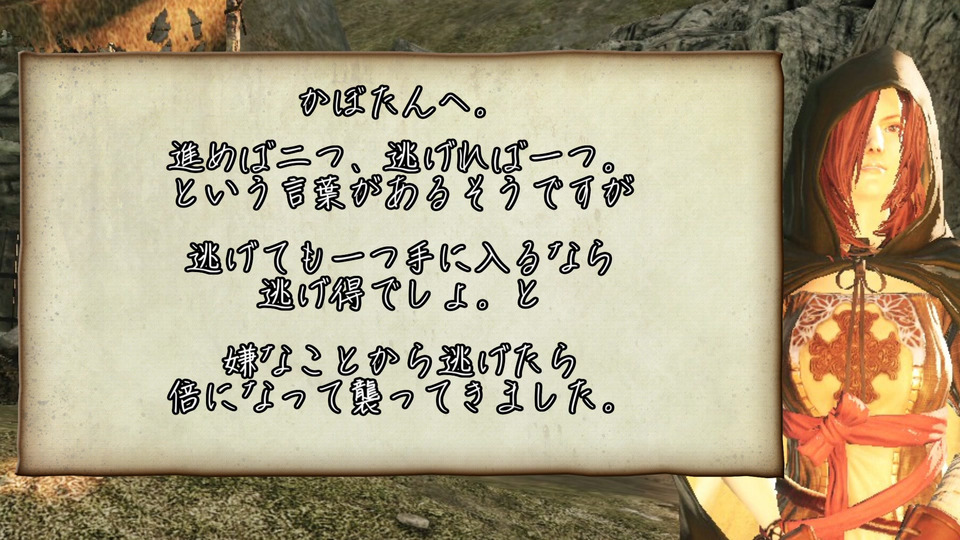 かぼたんへ。
進めば二つ、逃げれば一つ。
という言葉があるそうですが
逃げても一つ手に入るなら
逃げ得でしょ。と
嫌なことから逃げたら
倍になって襲ってきました。